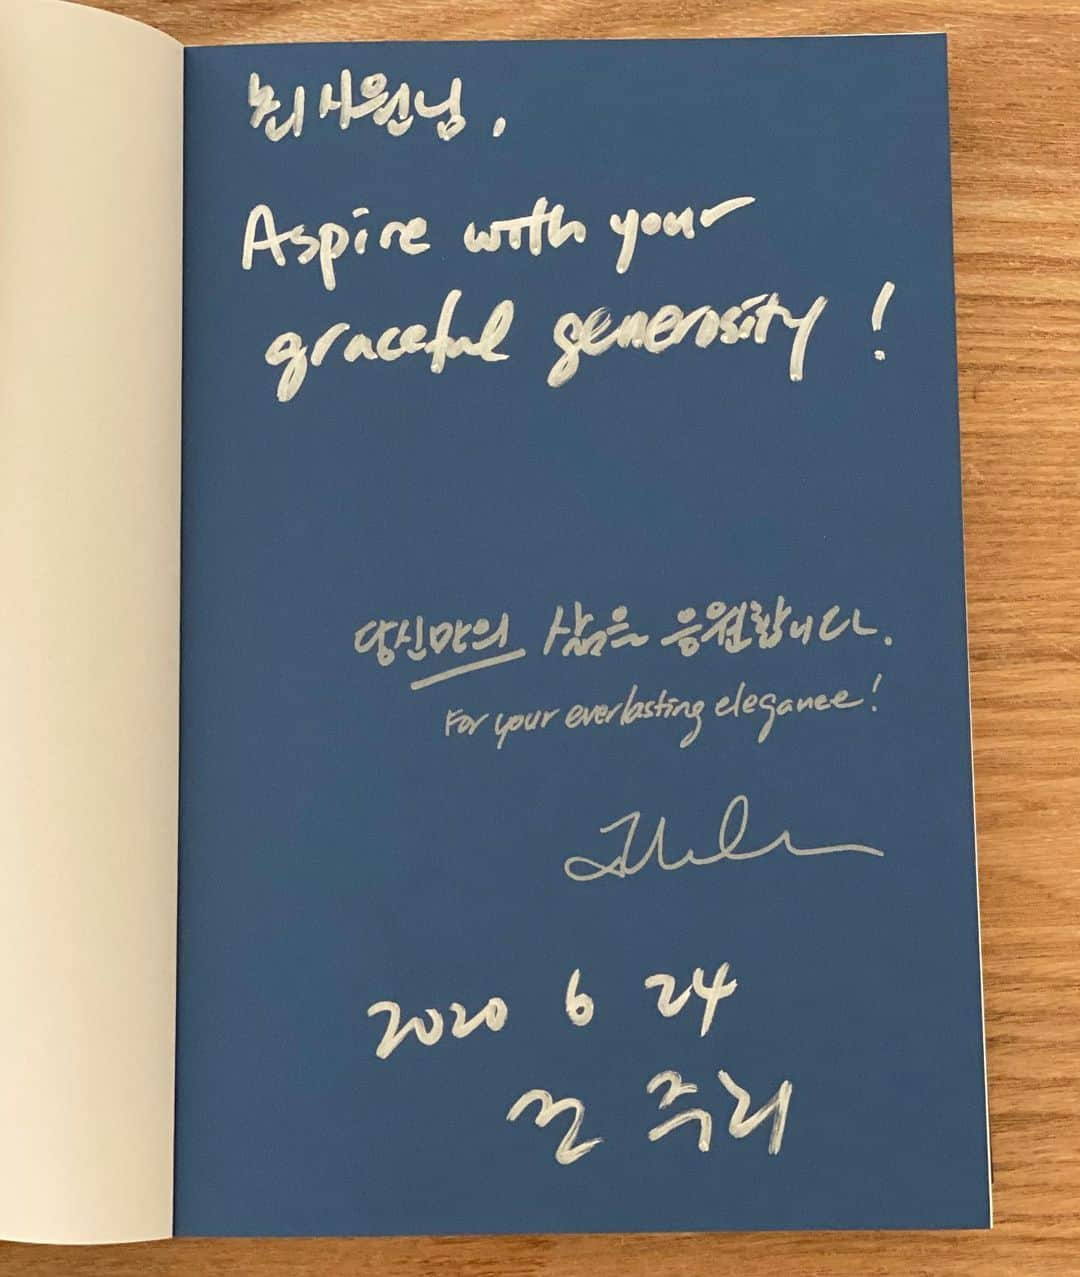 최시원님,
Aspire with your
graceful generosity!
당신만의 삶을 응원합니다.
For your everlasting elegance!
2020 6 24
조주리